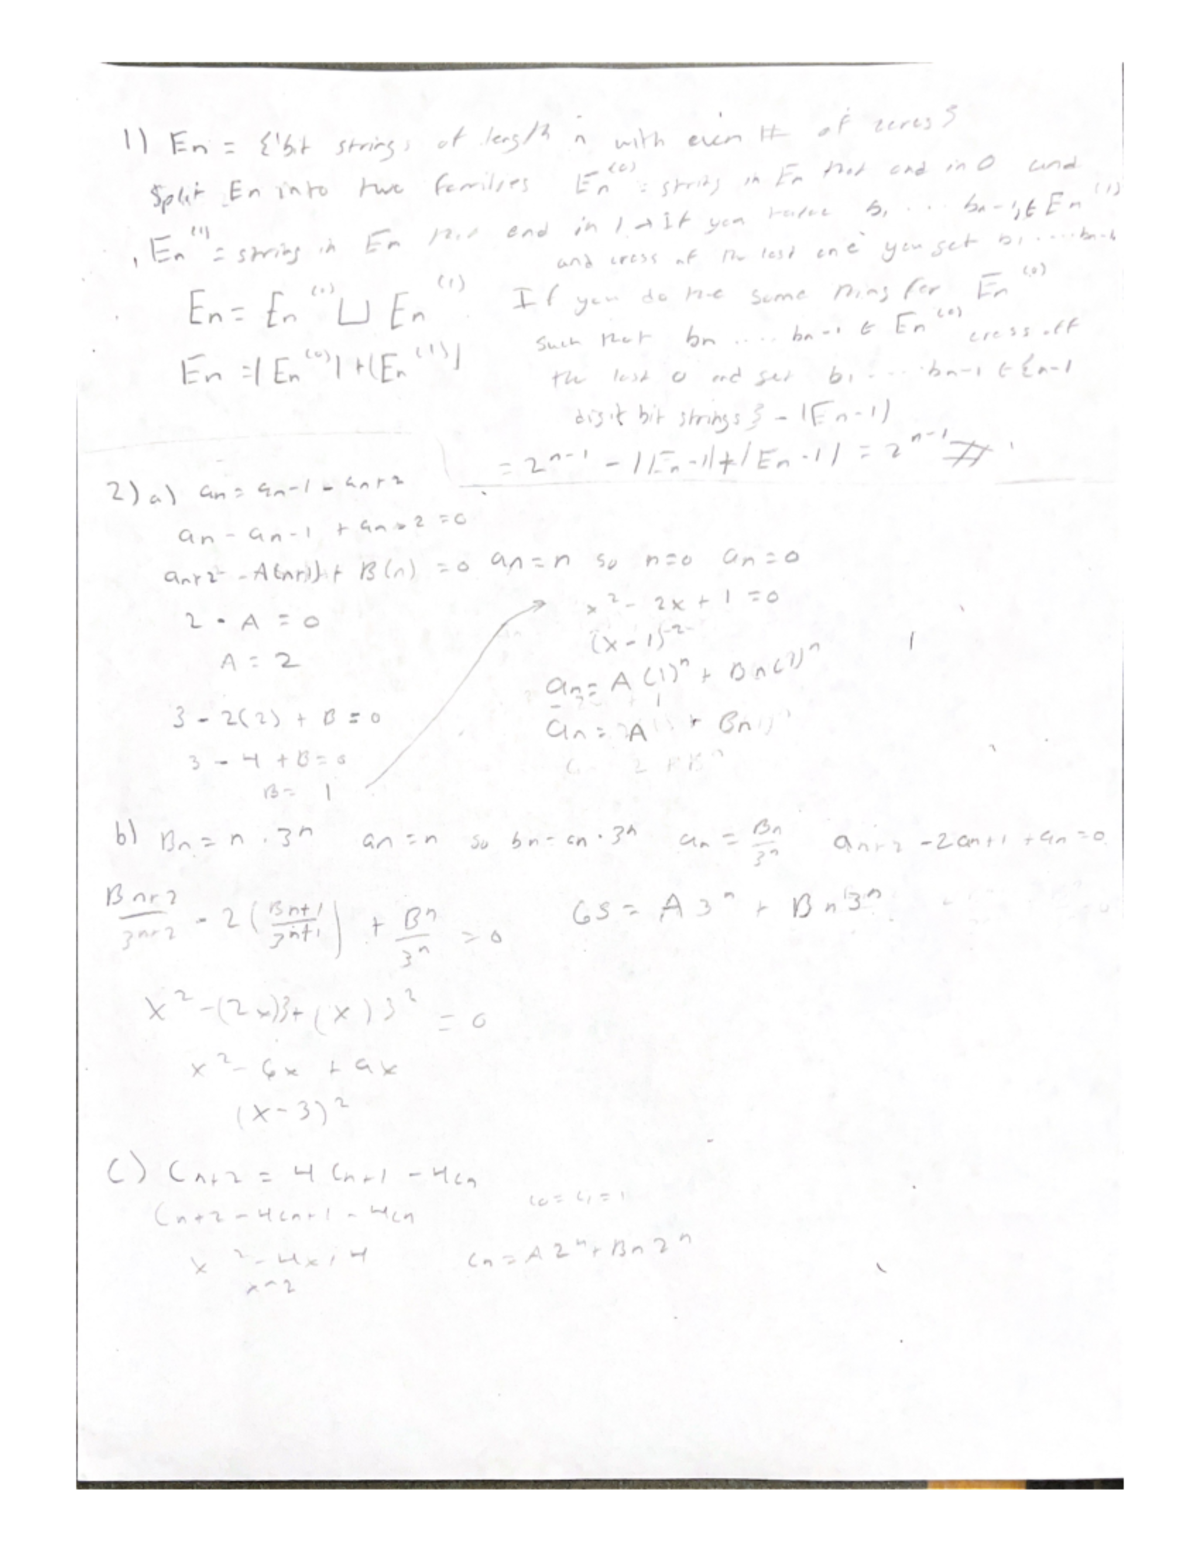 1) En = { bit strings of length n with even # of zeros }
Split En into two families En^(0) = string in En that end in 0 and
En^(1) = string in En that end in 1 → If you b1 .... bn-1 1 ∈ En^(1)
and cross of the last one you get b1 .....bn-1
En = En^(0) ⊔ En^(1)
If you do the same thing for En^(0)
such that bn .... bn-1 ∈ En^(0) cross off
En = |En^(0)| + |En^(1)|
the last 0 and get b1 .... bn-1 ∈ {n-1
digit bit strings } - |En-1|
= 2^n-1 - |En-1| + |En-1| = 2^n-1 #
2) a) an = an-1 - an+2
an - an-1 + an+2 = 0
an+2 - A(n+1) + B(n) = 0 an = n so n=0 an = 0
2 - A = 0
A = 2
3 - 2(2) + B = 0
3 - 4 + B = 0
B = 1
x^2 - 2x + 1 = 0
(x-1)^2
an = A(1)^n + Bn(1)^n
an = A + Bn
b) Bn = n · 3^n an = n so bn = an · 3^n an = Bn/3^n an+2 - 2an+1 + an = 0
Bn+2/3^n+2 - 2(Bn+1/3^n+1) + B^n/3^n = 0
GS = A3^n + Bn3^n
x^2 - (2x)3 + (x)3^2 = 0
x^2 - 6x + 9x
(x-3)^2
c) Cn+2 = 4Cn+1 - 4Cn
Cn+2 - 4Cn+1 - 4Cn
c0 = c1 = 1
x^2 - 4x + 4
x=2
Cn = A2^n + Bn2^n